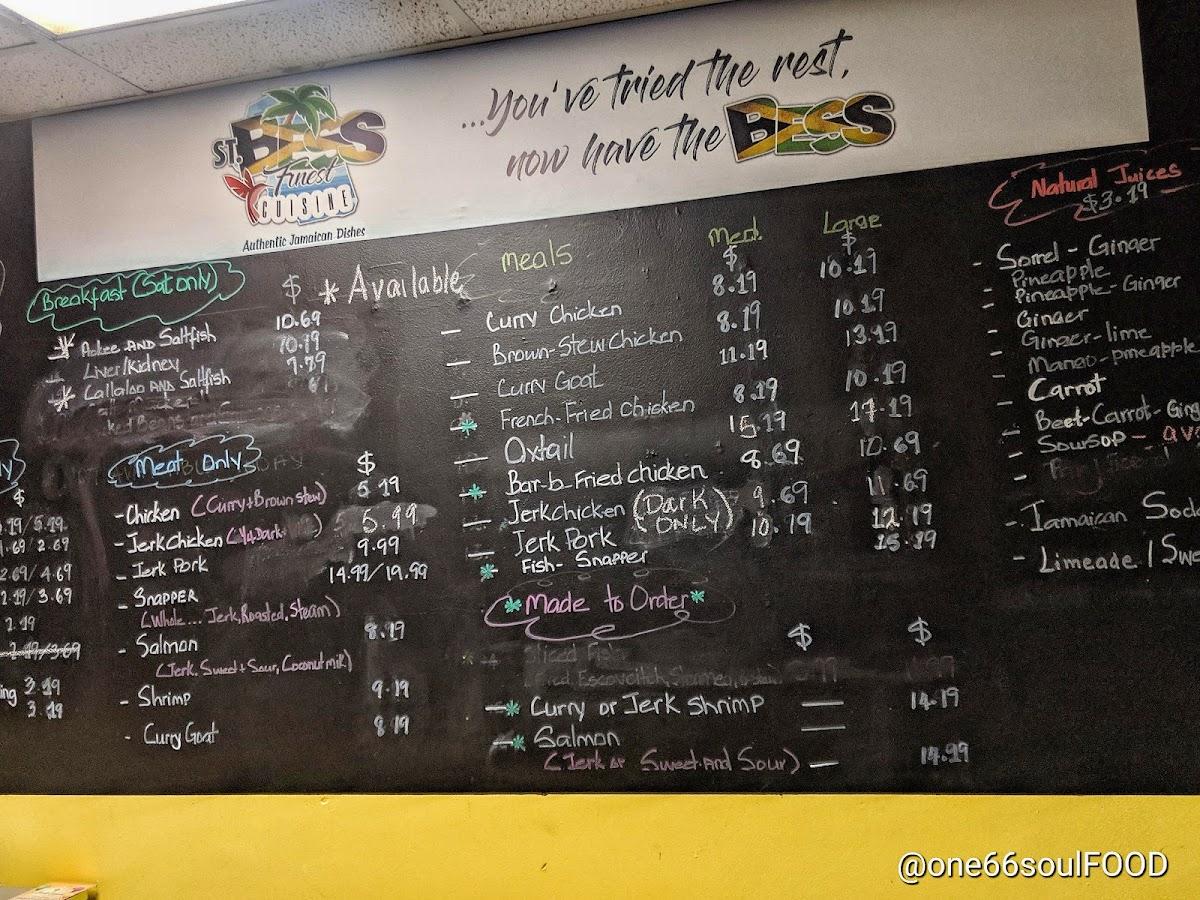 ...You've tried the rest,
now have the BESS
ST. BESS
Finest
CUISINE
Authentic Jamaican Dishes
Breakfast (Sat only) $
* Available
* Ackee AND Saltfish 10.69
- Liver/Kidney 10.19
* Callaloo AND Saltfish 9.79
Meat Only $
- Chicken (Curry+Brown stew) 5.19
- Jerk Chicken 5.99
- Jerk Pork 9.99
- SNAPPER 14.99/19.99
(Whole... Jerk, Roasted, Steam)
- Salmon 8.19
(Jerk, Sweet+Sour, Coconut milk)
- Shrimp 9.19
- Curry Goat 8.19
$
.19/5.49
.69/2.69
2.69/4.69
2.19/3.69
2.19
2.19/3.69
ing 3.19
3.19
Meals Med. $ Large $
- Curry Chicken 8.19 10.19
- Brown-Stew Chicken 8.19 10.19
- Curry Goat 11.19 13.19
* French-Fried Chicken 8.19 10.19
- Oxtail 15.19 17.19
* Bar-b-Fried chicken 8.69 10.69
- Jerk Chicken (Dark ONLY) 9.69 11.69
- Jerk Pork 10.19 12.19
* Fish- Snapper 15.19
* Made to Order *
$ $
-* Curry or Jerk Shrimp — 14.19
-* Salmon —
(Jerk or Sweet And Sour) — 14.99
Natural Juices
$3.19
- Sorrel - Ginger
- Pineapple
- Pineapple-Ginger
- Ginger
- Ginger-lime
- Mango-pineapple
- Carrot
- Beet-Carrot-Ging
- Soursop -
- Jamaican Soda
- Limeade / Swe
@one66soulFOOD